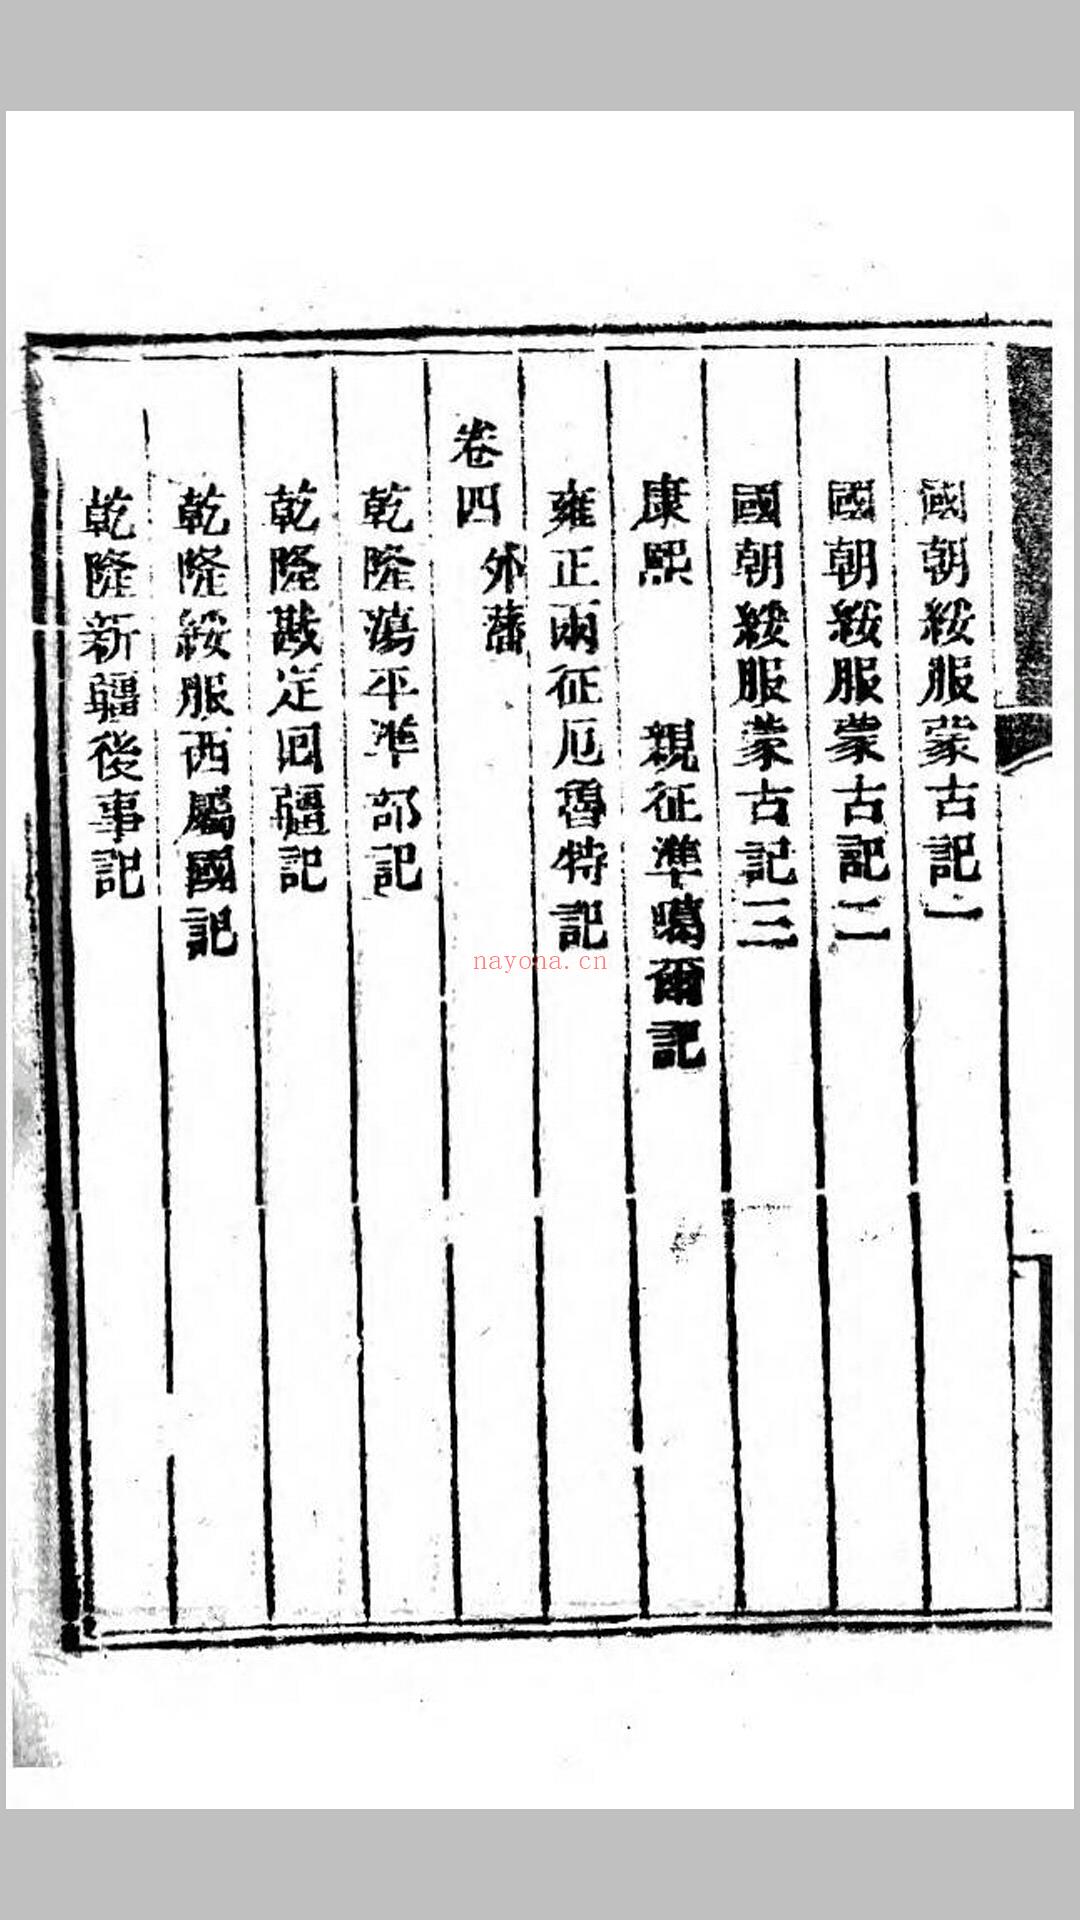 國朝綏服蒙古記一
國朝綏服蒙古記二
國朝綏服蒙古記三
康熙　親征準噶爾記
雍正兩征厄魯特記
卷四 外藩
乾隆蕩平準部記
乾隆戡定回疆記
乾隆綏服西屬國記
乾隆新疆後事記
nayona.cn